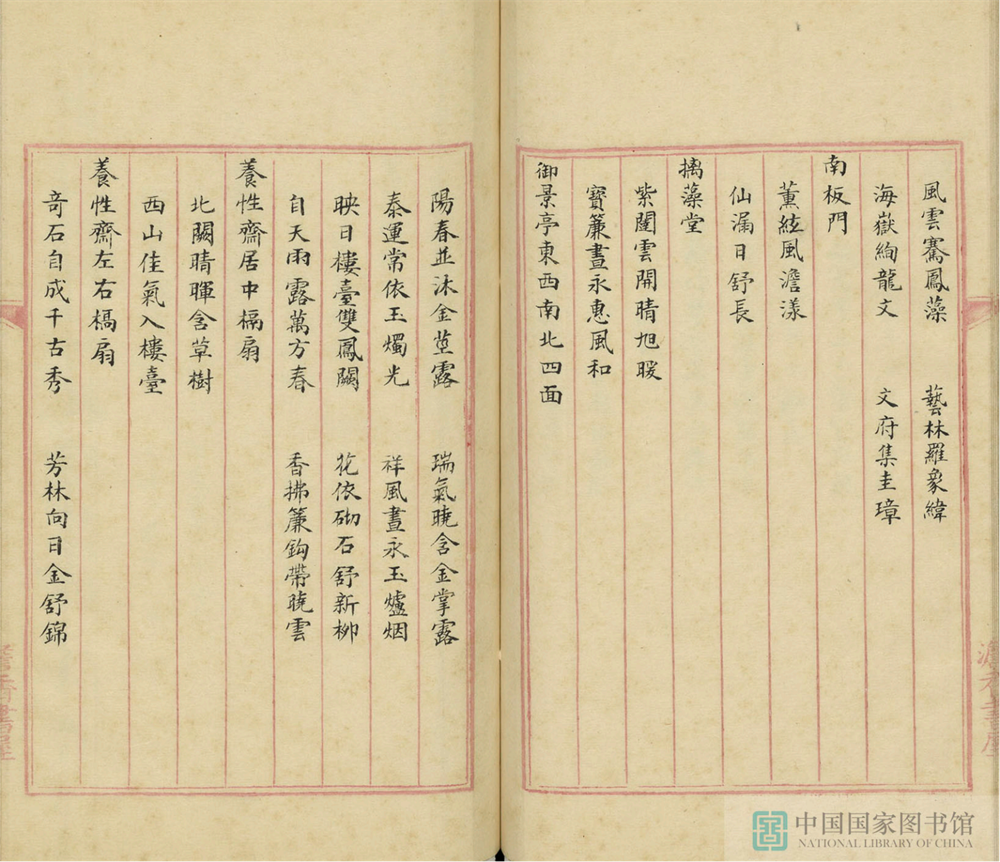 風雲騫鳳藻 藝林羅象緯
海嶽絢龍文 文府集圭璋
南板門
薰絃風澹漾
仙漏日舒長
摛藻堂
紫闥雲開晴旭暖
寶簾晝永惠風和
御景亭東西南北四面
陽春並沐金莖露 瑞氣曉含金掌露
泰運常依玉燭光 祥風晝永玉爐烟
映日樓臺雙鳳闕 花依砌石舒新柳
自天雨露萬方春 香拂簾鈎帶曉雲
養性齋居中槅扇
北闕晴暉含草樹
西山佳氣入樓臺
養性齋左右槅扇
奇石自成千古秀 芳林向日金舒錦
澹香書屋
中国国家图书馆
NATIONAL LIBRARY OF CHINA